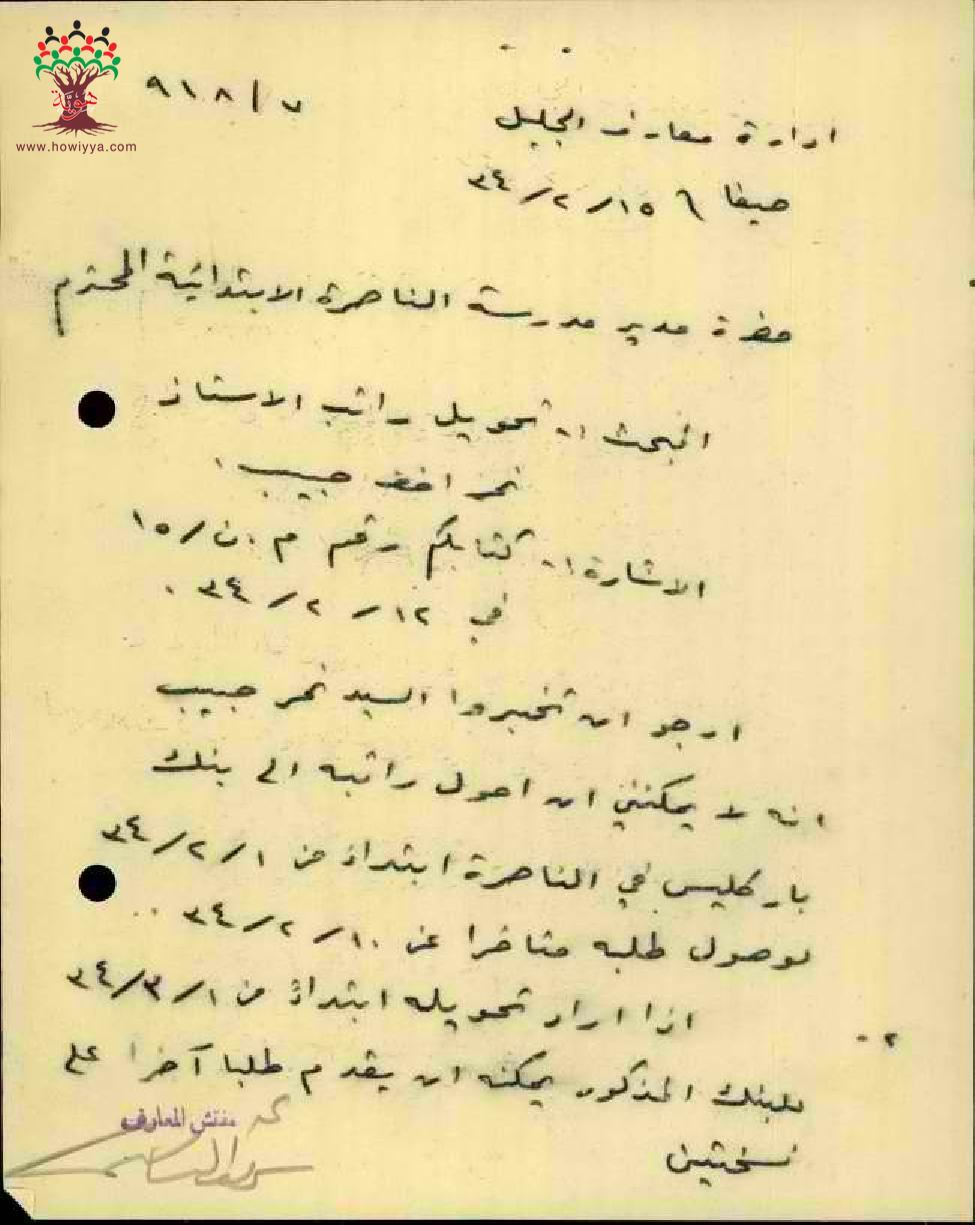 هوية
www.howiyya.com
٧/ ٩١٨
ادارة معارف الجليل
حيفا ٦ ١٥/ ٢/ ٣٤
حضرة مدير مدرسة الناصرة الابتدائية المحترم
البحث :- تحويل راتب الاستاذ
نمر حبيب .
الاشارة :- كتابكم رقم م .ن/ ١٥
في ١٢/ ٢/ ٣٤ .
ارجو ان تخبروا السيد نمر حبيب
انه لا يمكنني ان احول راتبه الى بنك
باركليس في الناصرة ابتداء من ١/ ٢/ ٣٤
لوصول طلبه متاخرا عن ١٠/ ٢/ ٣٤ ..
٢ .- اذا اراد تحويله ابتداءً من ١/ ٣/ ٣٤
للبنك المذكور يمكنه ان يقدم طلبا آخرا على
نسختين
مفتش المعارف